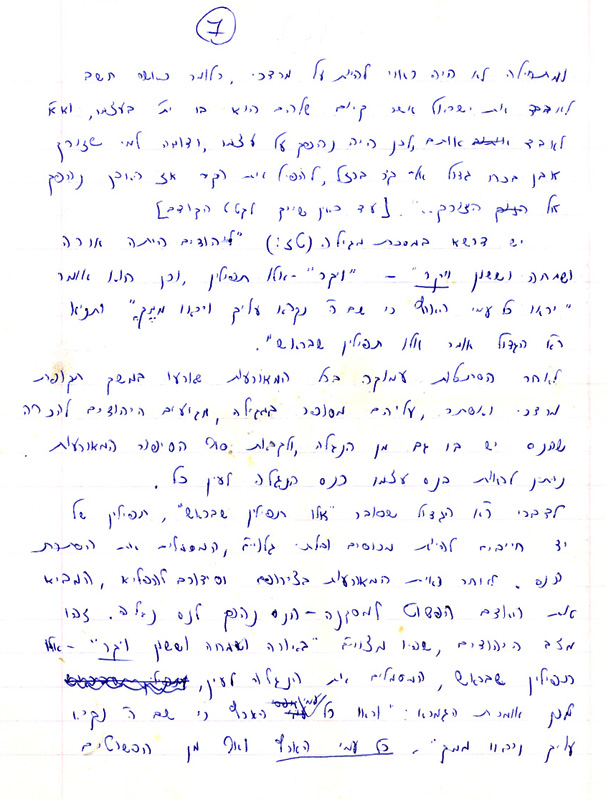 7
ומתחילה לא היה ראוי להיות על מרדכי, כלומר כאשר חשב
לאבד את ישראל אשר קיום שלהם הוא בו ית' בעצמו, וא"כ
לאבד אותם, לכן היה נהפך על עצמו, ודומה למי שזורק
אבן בכח גדול אל קיר ברזל, להפיל את הקיר אז האבן נהפך
אל הזורק..". [עד כאן שייך לקטע הקודם]
יש דרשא במסכת מגילה (טז:) "ליהודים היתה אורה
ושמחה וששון ויקר" – "ויקר" - אלו תפילין, וכן הוא אומר
"וראו כל עמי הארץ כי שם ה' נקרא עליך ויראו ממך" ותניא
ר"א הגדול אומר אלו תפילין שבראש".
לאחר הסתכלות עמוקה בכל המאורעות שארעו במשך תקופת
מרדכי ואסתר, עליהם מסופר במגילה, מגיעים היהודים להכרה
שהנס יש בו גם מן הנגלה, ולקראת סוף הסיפור המאורעות
ניתן לראות בנס עצמו כנס הנגלה לעין כל.
לדברי ר"א הגדול שסובר "אלו תפילין שבראש", תפילין של
יד חייבים להיות מכוסים ובלתי גלויים, המסמלים את הסתרת
הנס. לאחר ראית המאורעות בצירופם וסידורם להפליא, המביא
את האדם הפשוט למסקנה - הנס נהפך לנס נגלה. זהו
מצב היהודים, שהיו מצויים "באורה ושמחה וששון ויקר" - אלו
תפילין שבראש, המסמלים את הנגלה לעין,
לכן אומרת הגמרא: "וראו כל עמי הארץ כי שם ה' נקרא
עליך ויראו ממך". כל עמי הארץ ואף מן הפשוטים